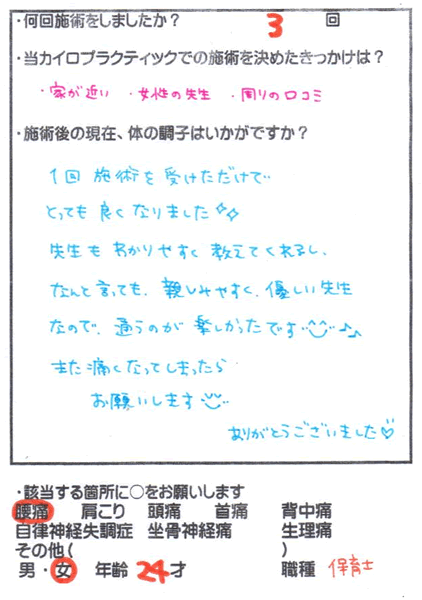 ・何回施術をしましたか？ 3 回
・当カイロプラクティックでの施術を決めたきっかけは？
・家が近い ・女性の先生 ・周りの口コミ
・施術後の現在、体の調子はいかがですか？
1回 施術を受けただけで
とっても良くなりました
先生も わかりやすく 教えてくれるし、
なんと言っても、親しみやすく、優しい先生
なので、通うのが 楽しかったです♪♪
また痛くなってしまったら
お願いします
ありがとうございました♡
・該当する箇所に○をお願いします
腰痛 肩こり 頭痛 首痛 背中痛
自律神経失調症 坐骨神経痛 生理痛
その他( )
男・女 年齢 24才 職種 保育士